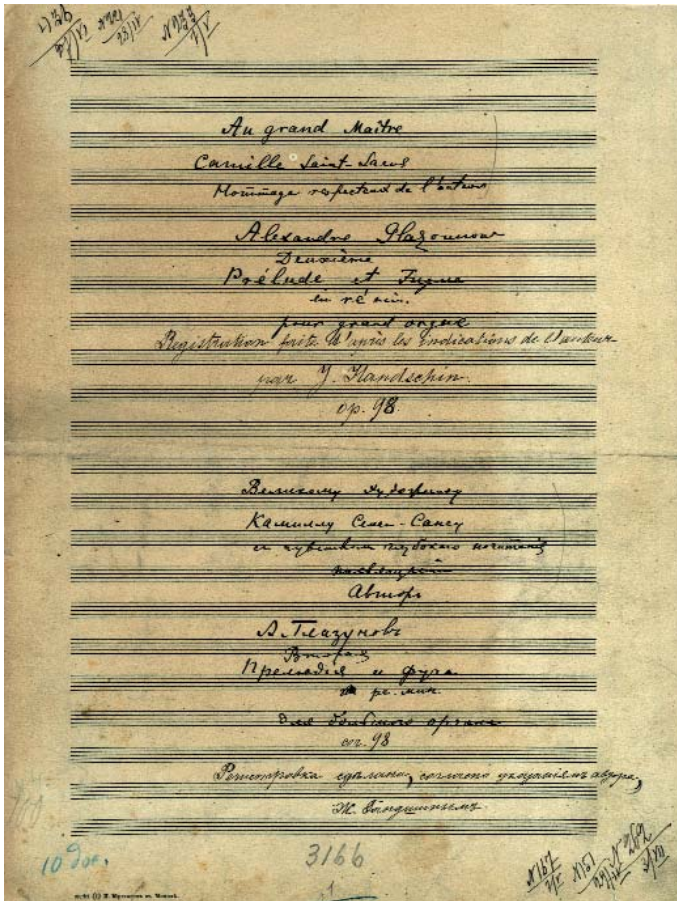 Au grand Maître
Camille Saint-Saëns
Hommage respecteux de l'auteur
Alexandre Glazounow
Deuxième
Prélude et Fugue
en ré min.
pour grand orgue
Registration faite d'après les indications de l'auteur
par J. Handschin.
op. 98.
Великому художнику
Камиллу Сенъ-Сансу
съ чувствомъ глубокаго почитанія
Авторъ
А. Глазуновъ
Вторая
Прелюдія и фуга
ре-мин.
для большого органа
соч. 98
Регистровка сдѣлана, согласно указаніямъ автора,
Ж. Гандшинымъ
10 дое.
3166
1